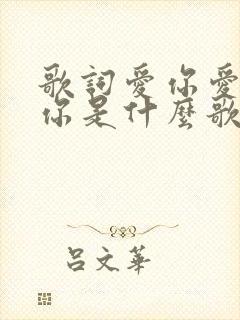 歌詞愛你愛
你是什麼歌
吕文華